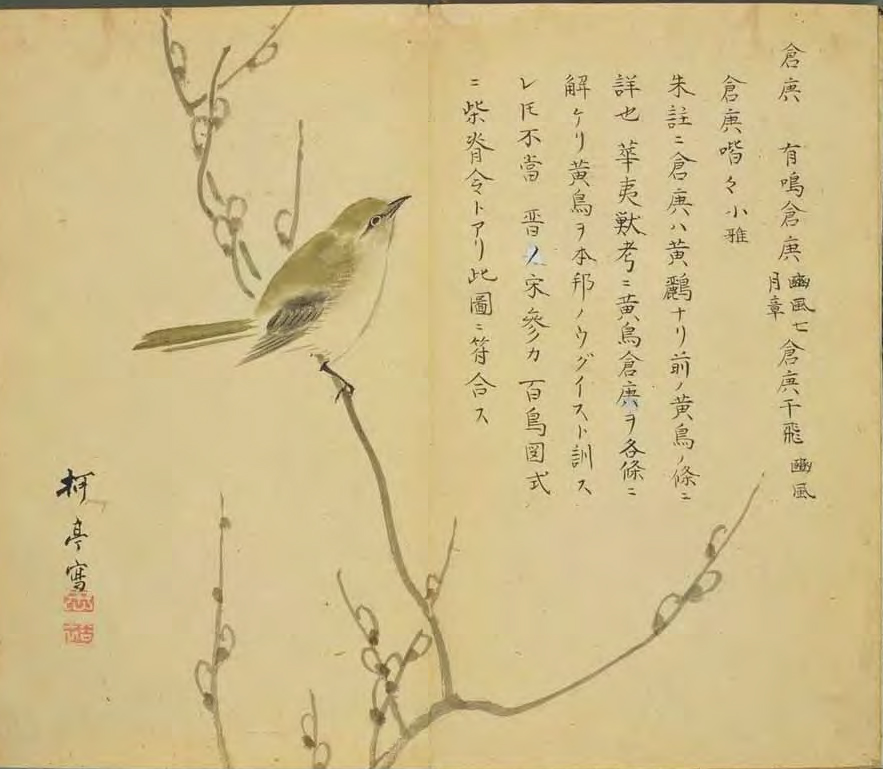 倉庚　有鳴倉庚 豳風七月章 倉庚于飛 豳風
倉庚喈々 小雅
朱註ニ倉庚ハ黄鸝ナリ前ノ黄鳥ノ條ニ
詳也 華夷獣考ニ黄鳥倉庚ヲ各條ニ
解ケリ黄鳥ヲ本邦ノウグイスト訓ス
レ𪜈不當 晋ノ宋參カ 百鳥図式
ニ柴脊令トアリ此圖ニ符合ス
柯亭寫